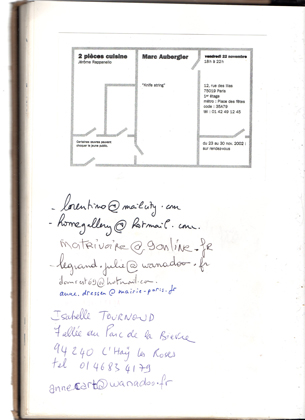 2 pièces cuisine
Jérôme Rappanello
Marc Aubergier
vendredi 22 novembre
18h à 22h
"invite string"
12, rue des lilas
75019 Paris
1er étage
métro : Place des fêtes
code : 36A79
tél : 01 42 49 12 45
Certaines œuvres peuvent
choquer le jeune public.
du 23 au 30 nov. 2002
sur rendez-vous
- lorentino@mailcity.com
- homegallery@hotmail.com
matrivoire@9online.fr
- legrand.julie@wanadoo.fr
@hotmail.com
anne.dressen@mairie-paris.fr
Isabelle TOURNOUD
7 allée du Parc de la Bièvre
94 240 L'Haÿ les Roses
tel 01 46 83 41 79
annecart@wanadoo.fr